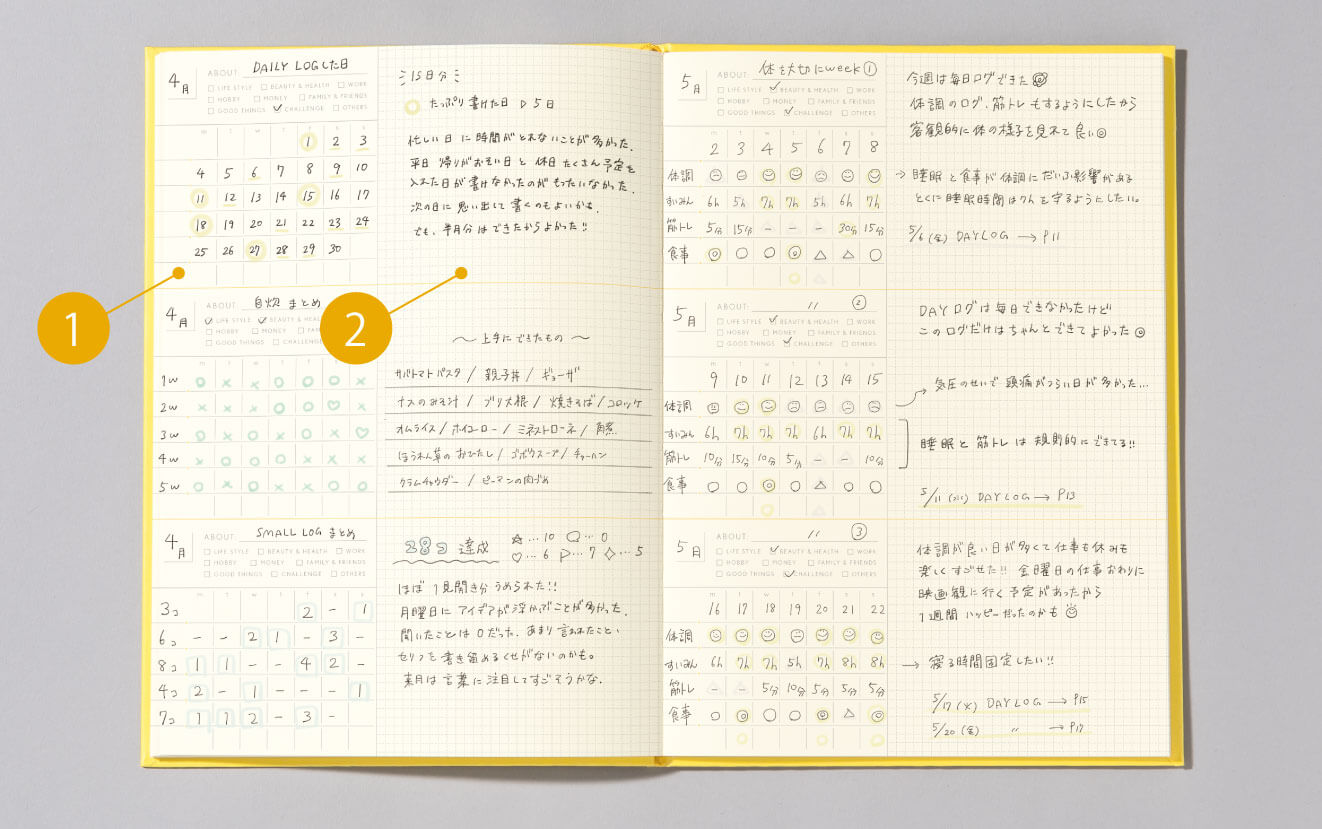 1
2
4月
ABOUT. DAILY LOGした日
□ LIFE STYLE □ BEAUTY & HEALTH □ WORK
□ HOBBY □ MONEY □ FAMILY & FRIENDS
□ GOOD THINGS ✓ CHALLENGE □ OTHERS
m t w t f s s
1 2 3
4 5 6 7 8 9 10
11 12 13 14 15 16 17
18 19 20 21 22 23 24
25 26 27 28 29 30
15日分
たっぷり書けた日 ▷ 5日
忙しい日に時間がとれないことが多かった。
平日帰りがおそい日と休日たくさん予定を
入れた日が書けなかったのがもったいなかった。
次の日に思い出して書くのもよいかも。
でも、半月分はできたからよかった!!
4月
ABOUT. 自炊まとめ
✓ LIFE STYLE ✓ BEAUTY & HEALTH
□ HOBBY □ MONEY
□ GOOD THINGS □ CHALLENGE □ OTHERS
m t w t f s s
1w ○ × × ○ ○ ○ ×
2w × × × ○ ○ ♡ ×
3w ○ × ○ × ○ × ♡
4w × ○ ○ ○ × × ×
5w ○ × ○ ○ × ○ ○
〜 上手にできたもの 〜
サバトマトパスタ / 親子丼 / ギョーザ
ナスのみそ汁 / ブリ大根 / 焼きそば / コロッケ
オムライス / ホイコーロー / ミネストローネ / 角煮
ほうれん草のおひたし / ゴボウスープ / チャーハン
クラムチャウダー / ピーマンの肉づめ
4月
ABOUT. SMALL LOGまとめ
□ LIFE STYLE □ BEAUTY & HEALTH □ WORK
□ HOBBY □ MONEY □ FAMILY & FRIENDS
□ GOOD THINGS □ CHALLENGE □ OTHERS
m t w t f s s
3コ 2 - 1
6コ - - 2 1 - 3 -
8コ 1 1 - - 4 2 -
4コ 2 - 1 - - - 1
7コ 1 1 2 - 3 -
28コ 達成
☆…10 …0
♡…6 …7 ✧…5
ほぼ1見開き分うめられた!!
月曜日にアイデアが浮かぶことが多かった。
聞いたことは0だった。あまり言われたこと、
セリフを書き留めるくせがないのかも。
来月は言葉に注目してすごそうかな。
5月
ABOUT. 体を大切にweek①
□ LIFE STYLE ✓ BEAUTY & HEALTH □ WORK
□ HOBBY □ MONEY □ FAMILY & FRIENDS
□ GOOD THINGS ✓ CHALLENGE □ OTHERS
m t w t f s s
2 3 4 5 6 7 8
体調
すいみん 6h 5h 7h 7h 5h 6h 7h
筋トレ 5分 15分 - - - 30分 15分
食事 ◎ ○ ○ ◎ △ △ ○
今週は毎日ログできた
体調のログ、筋トレもするようにしたから
客観的に体の様子を見れて良い
→ 睡眠と食事が体調にだいぶ影響がある
とくに睡眠時間は7hを守るようにしたい。
5/6(金) DAYLOG → P11
5月
ABOUT. 〃 ②
□ LIFE STYLE ✓ BEAUTY & HEALTH □ WORK
□ HOBBY □ MONEY □ FAMILY & FRIENDS
□ GOOD THINGS ✓ CHALLENGE □ OTHERS
m t w t f s s
9 10 11 12 13 14 15
体調
すいみん 6h 7h 7h 7h 6h 7h 7h
筋トレ 10分 15分 10分 5分 - - 10分
食事 ○ ○ ◎ ○ △ ○ ○
DAYログは毎日できなかったけど
このログだけはちゃんとできてよかった
気圧のせいで頭痛がつらい日が多かった…
睡眠と筋トレは規則的にできてる!!
5/11 DAYLOG → P13
5月
ABOUT. 〃 ③
□ LIFE STYLE ✓ BEAUTY & HEALTH □ WORK
□ HOBBY □ MONEY □ FAMILY & FRIENDS
□ GOOD THINGS ✓ CHALLENGE □ OTHERS
m t w t f s s
16 17 18 19 20 21 22
体調
すいみん 6h 7h 7h 5h 7h 8h 8h
筋トレ - - 5分 10分 5分 5分 5分
食事 ○ ◎ ○ ○ ◎ △ ◎
体調が良い日が多くて仕事も休みも
楽しくすごせた!! 金曜日の仕事おわりに
映画観に行く予定があったから
1週間ハッピーだったのかも
→ 寝る時間固定したい!!
5/17(火) DAYLOG → P15
5/20(金) 〃 → P17